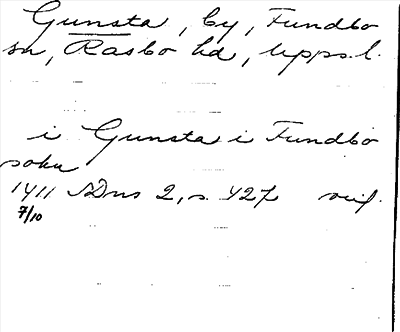 Gunsta, by, Fundbo
sn, Rasbo hd, Upps.l.
i Gunsta i Fundbo
sokn
1411 SDns 2, s. 427
7/10